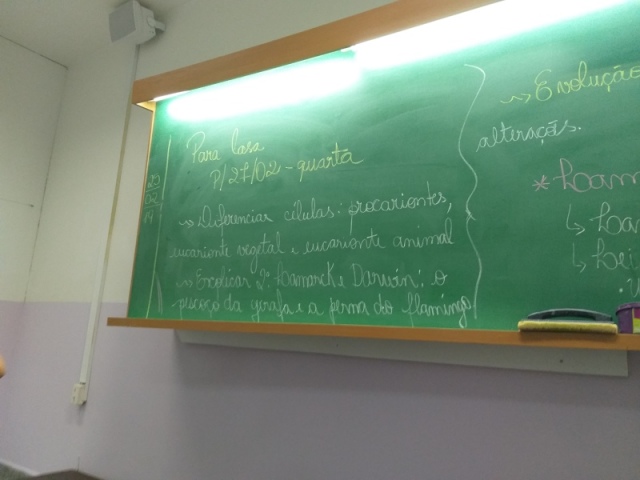 Para Casa
P/ 27/02 - quarta
~> Diferenciar células: procariontes,
eucarionte vegetal e eucarionte animal
~> Explicar 2º Lamarck e Darwin: o
pescoço da girafa e a perna do flamingo
~> Evolução
alterações.
* Lam
↳ La
↳ Lei